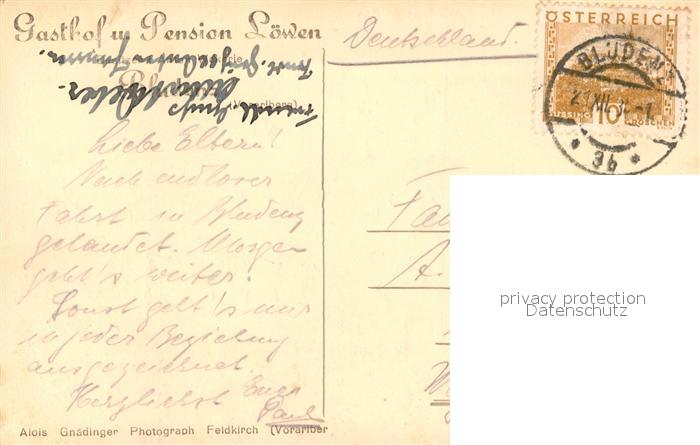 Gasthof u Pension Löwen
Deutschland.
ÖSTERREICH
BLUDENZ
10
GROSCHEN
* 3b *
(Vorarlberg)
Liebe Eltern!
Nach endloser
Fahrt in Bludenz
gelandet. Morgen
geht's weiter.
Sonst geht's mir
in jeder Beziehung
ausgezeichnet.
Herzlichst Euer
Paul
privacy protection
Datenschutz
Alois Gnädinger Photograph Feldkirch (Vorarlber